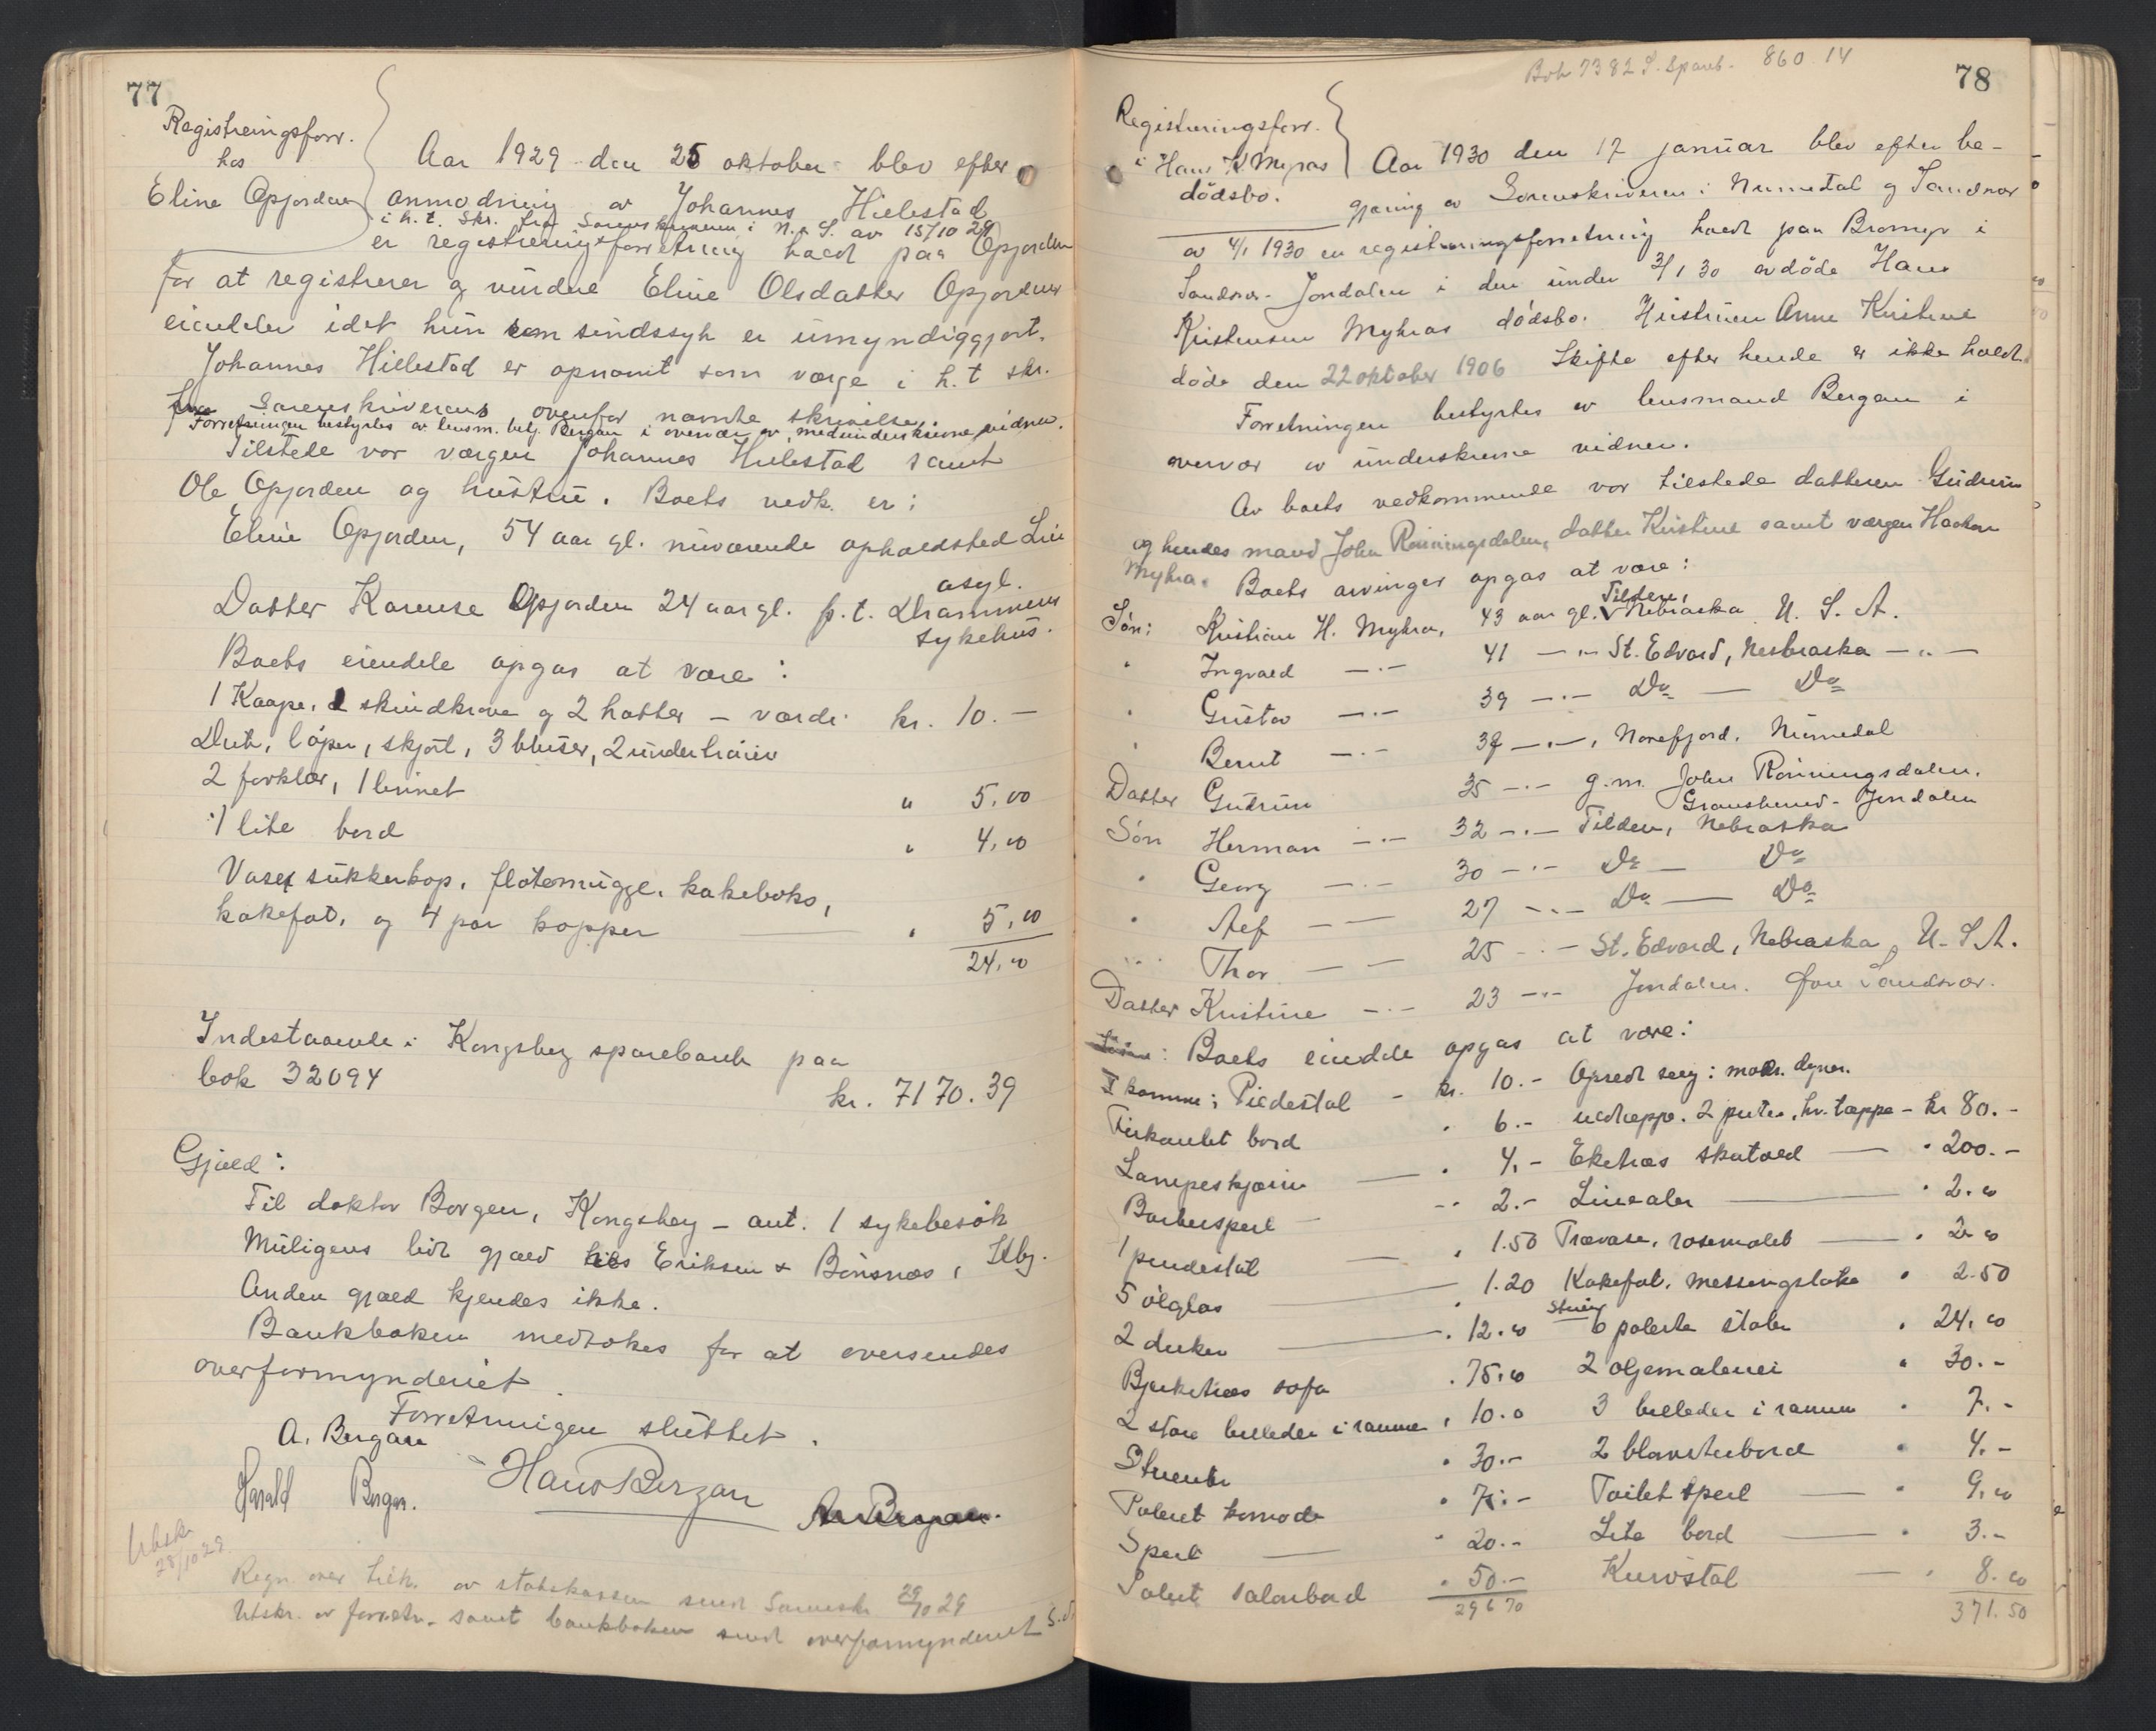 77
Registreringsforr.
hos
Eline Opjorden
Aar 1929 den 25 oktober blev efter
anmodning av Johannes Hillestad
i h. t. Skr. fra Sorenskriveren i N. & S. av 15/10 29
er registreringsforretning holdt paa Opjorden
for at registrere og vurdere Eline Olsdatter Opjordens
eiendeler idet hun som sindssyk er umyndiggjort.
Johannes Hillestad er opnævnt som værge i h. t. skr.
fra Sorenskriverens ovenfor nævnte skrivelse.
Forretningen bestyrtes av lensm. betj. Bergan i overvær av medunderskrevne vidner.
Tilstede var værgen Johannes Hillestad samt
Ole Opjorden og hustru. Boets vedk. er:
Eline Opjorden, 54 aar gl. nuværende opholdsted Lier
asyl.
Datter Karense Opjorden 24 aar gl. p. t. Drammens
sykehus.
Boets eiendele opgas at være:
1 Kaape, 2 skindkrave og 2 hatter – værdi kr. 10.–
Drct, løper, skjørt, 3 bluser, 2 undertrøier
2 forklær, 1 linnet " 5.00
1 lite bord " 4.00
Vase, sukkerkop, fløtemugge, kakeboks,
kakefat, og 4 par kopper " 5.00
24.00
Indestaaende i Kongsberg sparebank paa
bok 32094 kr. 7170.39
Gjæld:
Til doktor Borgen, Kongsberg – ant. 1 sykebesøk
Muligens litt gjæld hos Eriksen & Bønsnæs, Kbg.
Anden gjæld kjendes ikke.
Bankboken medtokes for at oversendes
overformynderiet.
Forretningen sluttet.
A. Bergan
Harald Bergan. Hans Bergan
Utskr.
28/10 29.
Regn. over tilk. av statskassen sendt Sorenskr. 29/10 29
Utskr. av forretn. samt bankboken sendt overformynderiet S. d.
Bok 7382 S. Spareb. 860.14
78
Registreringsforr.
i Hans K. Myras
dødsbo.
Aar 1930 den 17 januar blev efter be-
gjæring av Sorenskriveren i Numedal og Sandsvær
av 4/1 1930 en registreringsforretning holdt paa Bromyr i
Sandsvær-Jondalen i den under 3/1 30 avdøde Hans
Kristensen Myhras dødsbo. Hustruen Anne Kristine
døde den 22 oktober 1906 Skifte efter hende er ikke holdt.
Forretningen bestyrtes av lensmand Bergan i
overvær av underskrevne vidner.
Av boets vedkommende var tilstede datteren Gudrun
og hendes mand John Rønningsdalen, datter Kristine samt værgen Haakon
Myhra. Boets arvinger opgas at være:
Søn: Kristian H. Myhra, 43 aar gl. Tilden, Nebraska U. S. A.
" Ingvald —"— 41 —"— St. Edvard, Nesbraska —"—
" Gustav —"— 39 —"— Do — Do
" Bernt —"— 38 —"—, Norefjord, Numedal
Datter Gudrun 35 —"— g.m. John Rønningsdalen.
Gransherred-Jondalen
Søn Herman —"— 32 —"— Tilden, Nebraska
" Georg —"— 30 —"— Do — Do
" Alef —— 27 —"— Do — Do
" Thor —— 25 —"— St. Edvard, Nebraska, U. S. A.
Datter Kristine —"— 23 —"— Jondalen. Øvre Sandsvær.
Boets eiendele opgas at være:
I kammer: Pidestal – kr. 10.– Opredt seng: madr. dyner.
Firkantet bord " 6.– uldteppe. 2 puter, hv. tæppe – kr 80.–
Lampeskjærm " 4.– Eketræs skatoll — " 200.–
Barberspeil – " 2.– Linealer — " 2.00
1 pindestol " 1.50 Trævase, rosemalet — " 2.00
5 ølglas " 1.20 Kakefat, messingstake " 2.50
2 duker " 12.00 Stuen: 6 polerte stoler " 24.00
Bjerketræs sofa " 75.00 2 oljemalerier " 30.–
2 store billeder i ramme " 10.00 3 billeder i ramme " 7.–
Stueur " 30.– 2 blomsterbord " 4.–
Poleret komode " 75.– Toilet speil — " 9.00
Speil " 20.– Lite bord — " 3.–
Polert salonbord " 50.– Kurvstol — " 8.00
296 70 371.50